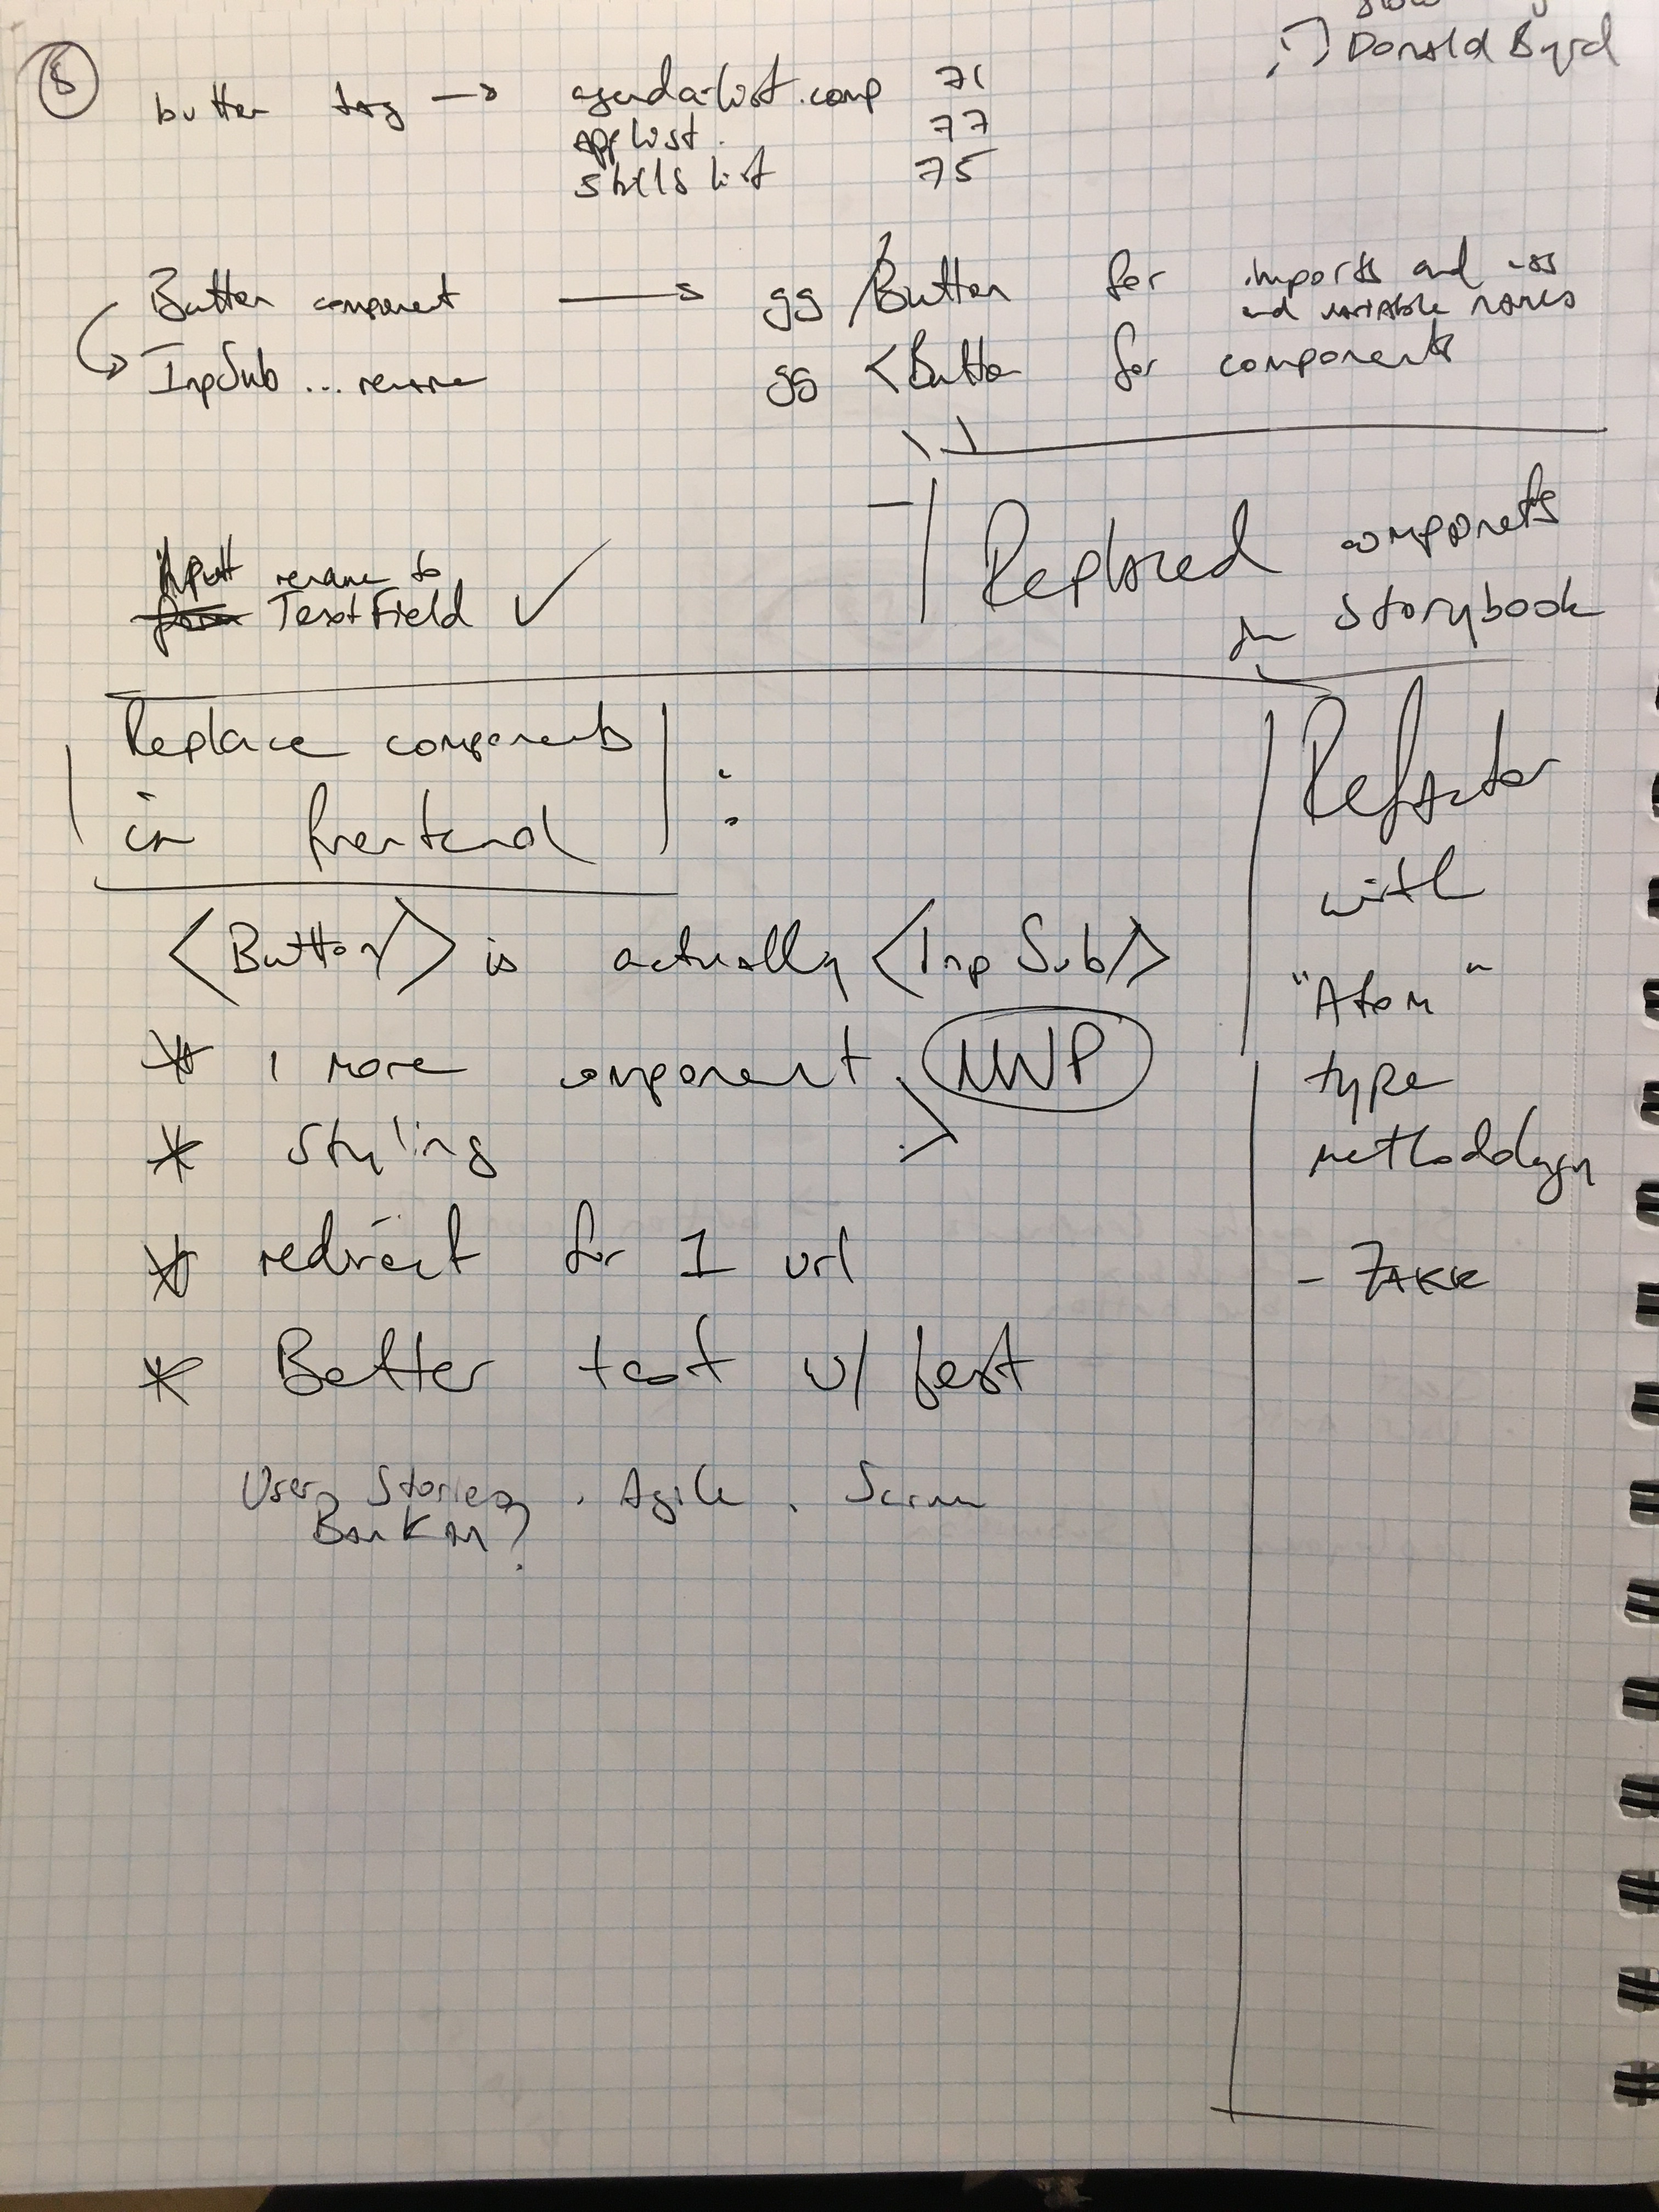 Donald Byrd
8
button tag → agenda-list.comp 71
app list. 77
skills list 75
Button component → gg /Button for imports and css
and variable names
InpSub ... rename gg <Button for components
Replaced components
in storybook
input rename to
TextField ✓
Replace components
in frontend :
<Button/> is actually <InpSub/>
* 1 more component
* styling
* redirect for 1 url
* Better test w/ jest
User Stories, Agile, Scrum
Refactor
with
"Atom"
type
methodology
- ZAKK